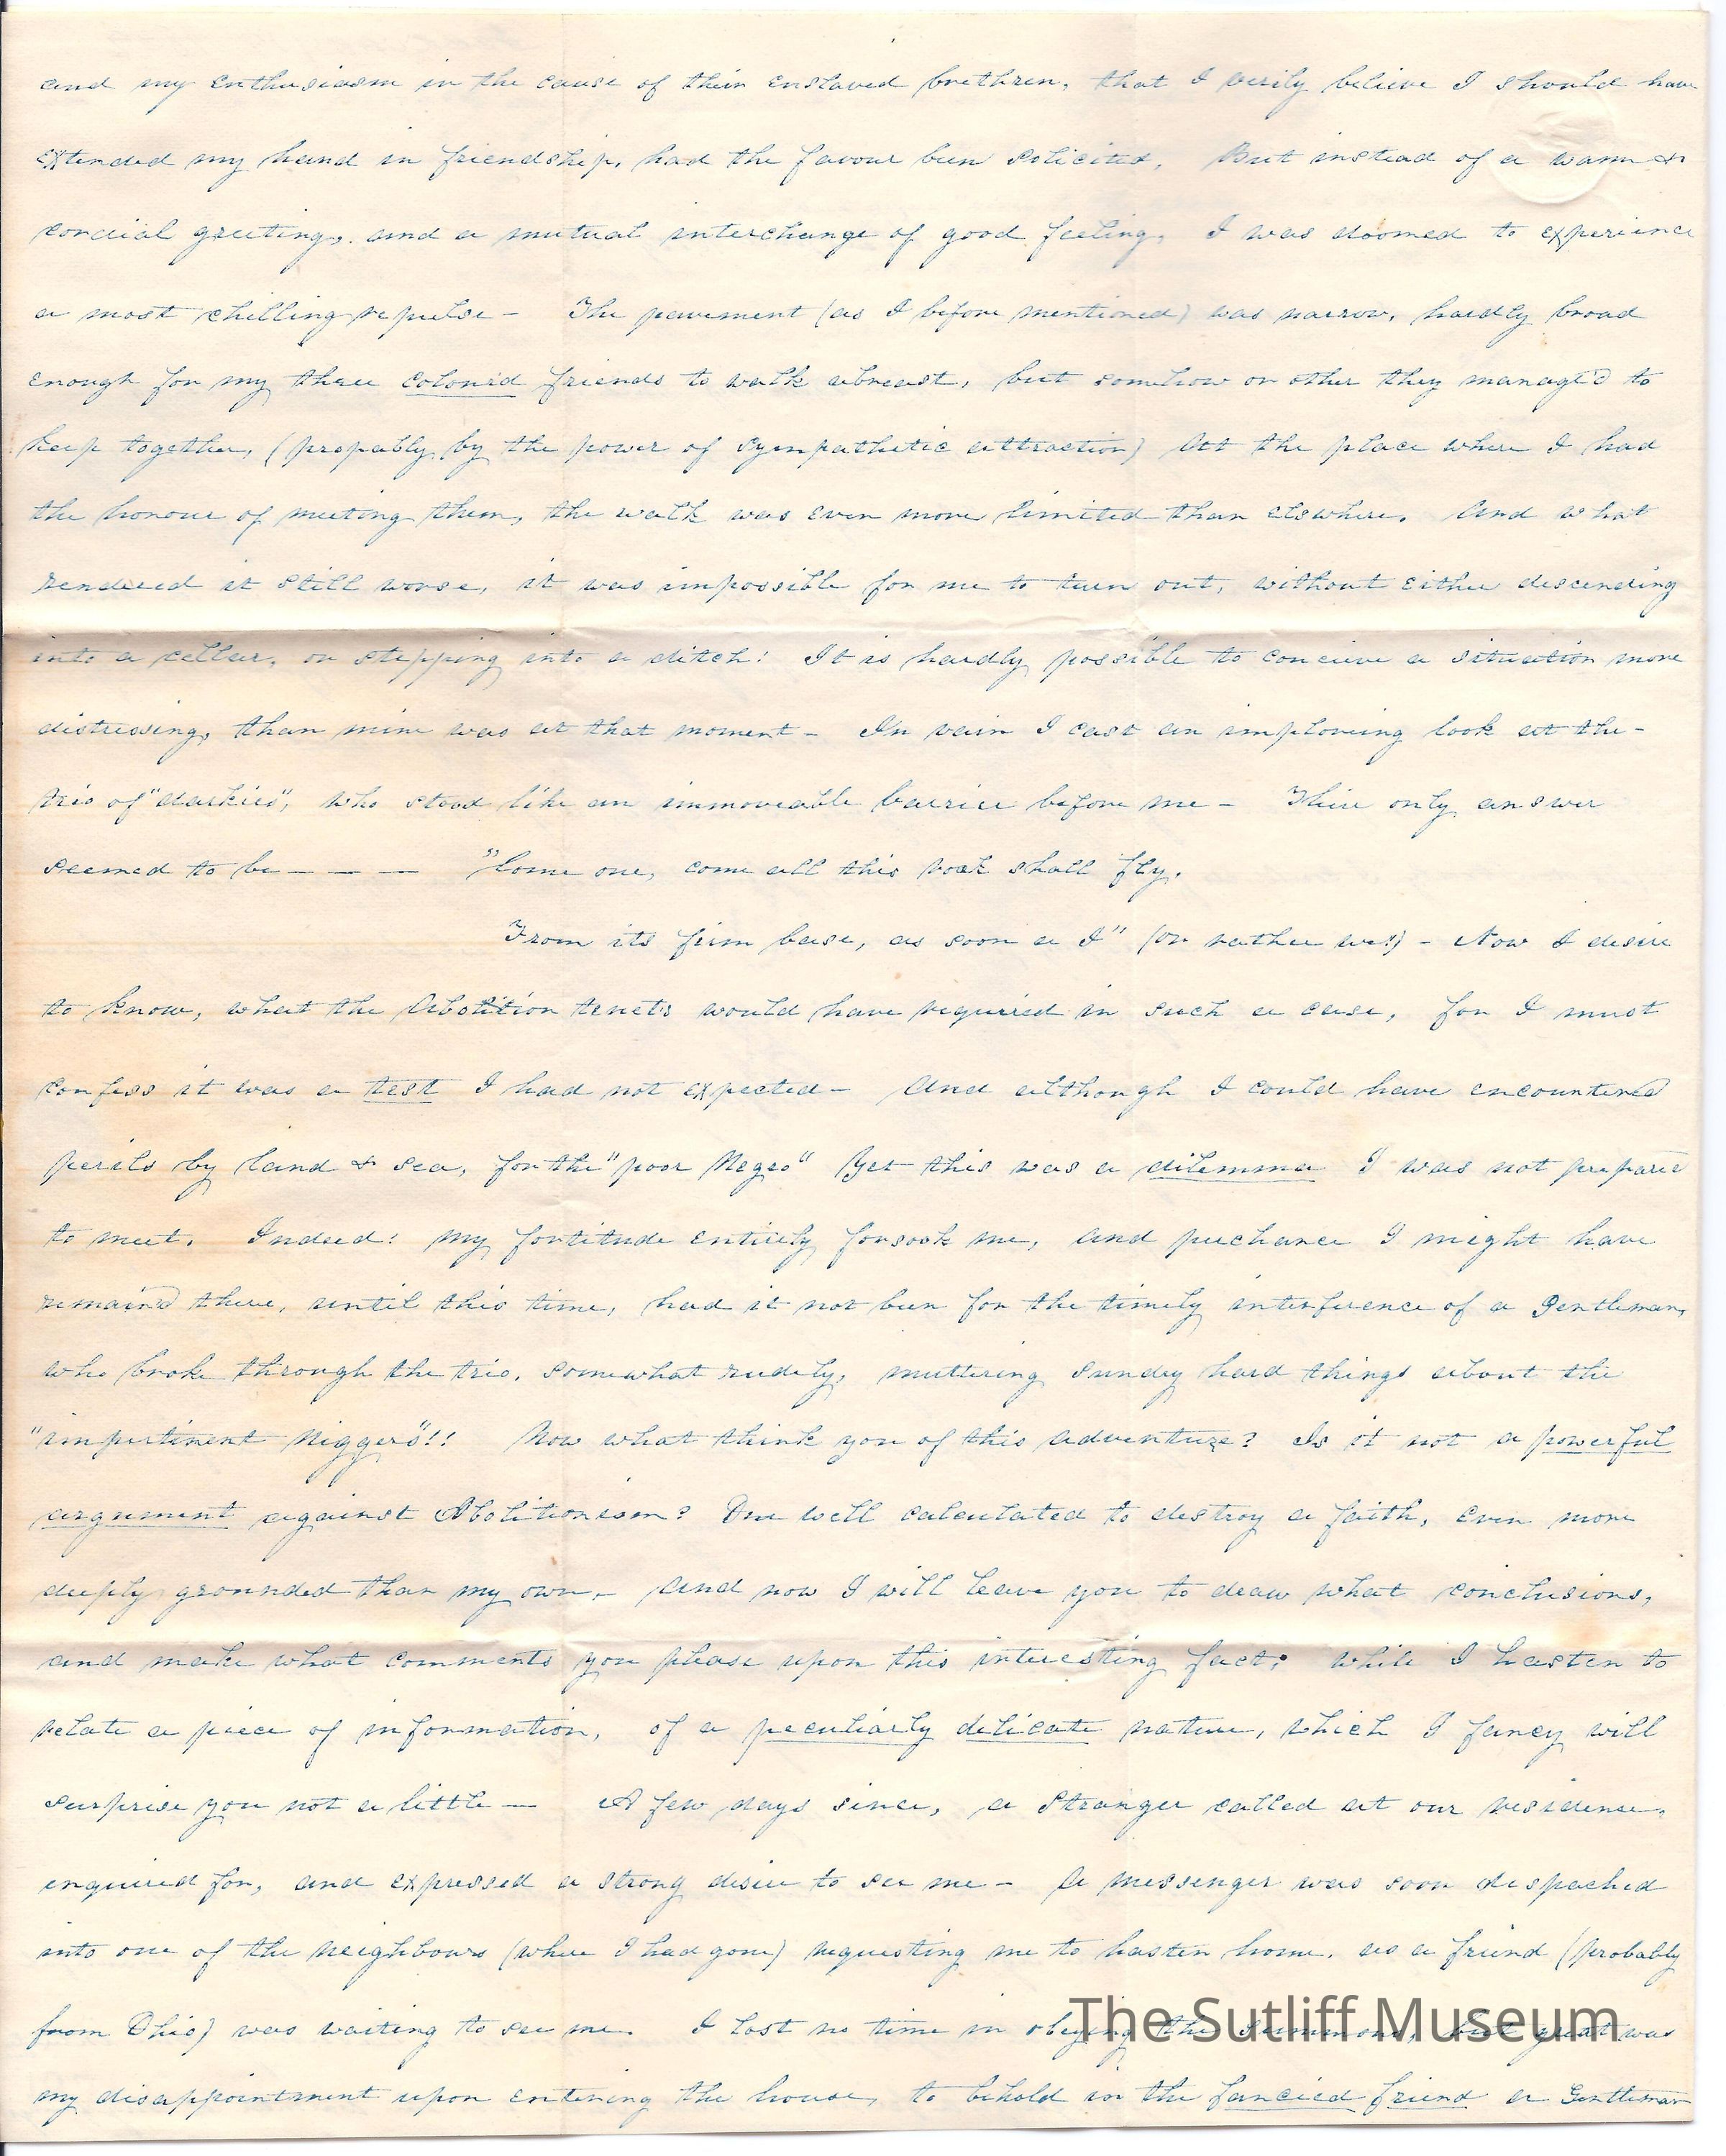 and my enthusiasm in the cause of their enslaved brethren, that I verily believe I should have
extended my hand in friendship, had the favour been solicited, But instead of a warm &
cordial greeting, and a mutual interchange of good feeling, I was doomed to experience
a most chilling repulse - The pavement (as I before mentioned) was narrow, hardly broad
enough for my three colour'd friends to walk abreast, but somehow or other they manag'd to
keep together, (propably by the power of sympathetic attraction) At the place where I had
the honour of meeting them, the walk was even more limited than elswhere. And what
rendered it still worse, it was impossible for me to turn out, without either descending
into a cellar, or stepping into a ditch! It is hardly possible to conceive a situation more
distressing, than mine was at that moment - In vain I cast an imploring look at the -
trio of "darkies", who stood like an immoveable barrier before me - Their only answer
seemed to be - - - - "Come one, come all this rock shall fly,
From its firm base, as soon a I" (or rather we!) - Now I desire
to know, what the Abolition tenets would have required in such a case, for I must
confess it was a test I had not expected - And although I could have encountered
perils by land & sea, for the "poor Negro" Yet this was a dilemma I was not prepared
to meet. Indeed! my fortitude entirely forsook me, and perchance I might have
remain'd there, until this time, had it not been for the timely interference of a Gentleman,
who broke through the trio, somewhat rudely, muttering sundry hard things about the
"impertinent Niggers"!! Now what think you of this adventure? Is it not a powerful
argument against Abolitionism? One well calculated to destroy a faith, even more
deeply grounded than my own. - And now I will leave you to draw what conclusions,
and make what comments you please upon this interesting fact; while I hasten to
relate a piece of information, of a peculiarly delicate nature, which I fancy will
surprise you not a little — A few days since, a stranger called at our residence,
enquired for, and expressed a strong desire to see me - A messenger was soon despached
into one of the neighbours (where I had gone) requesting me to hasten home, as a friend (probably
from Ohio) was waiting to see me. I lost no time in obeying the summons, but great was
my disappointment upon entering the house, to behold in the fancied friend a Gentleman
The Sutliff Museum